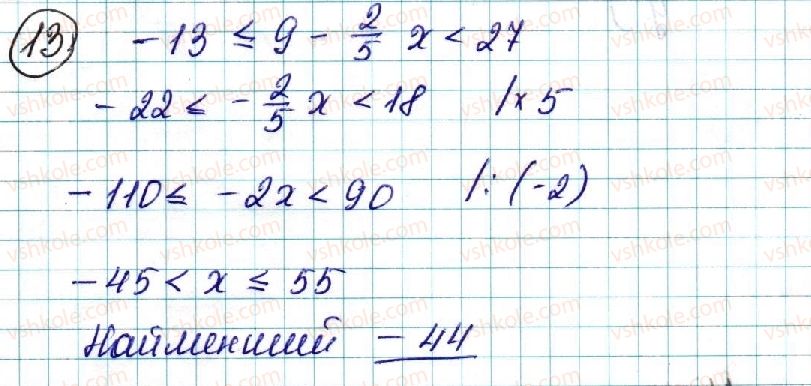 13) -13 ≤ 9 - 2/5 x < 27
-22 ≤ -2/5 x < 18 /× 5
-110 ≤ -2x < 90 /: (-2)
-45 < x ≤ 55
Найменший -44